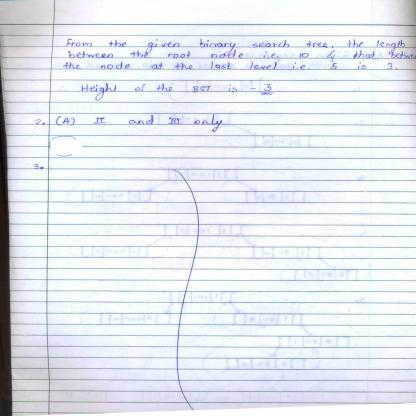 From the given binary search tree, the length
between the root node i.e. 10 & that between
the node at the last level i.e. 5 is 3.
∴ Height of the BST is - 3
2. (A) II and III only
3.